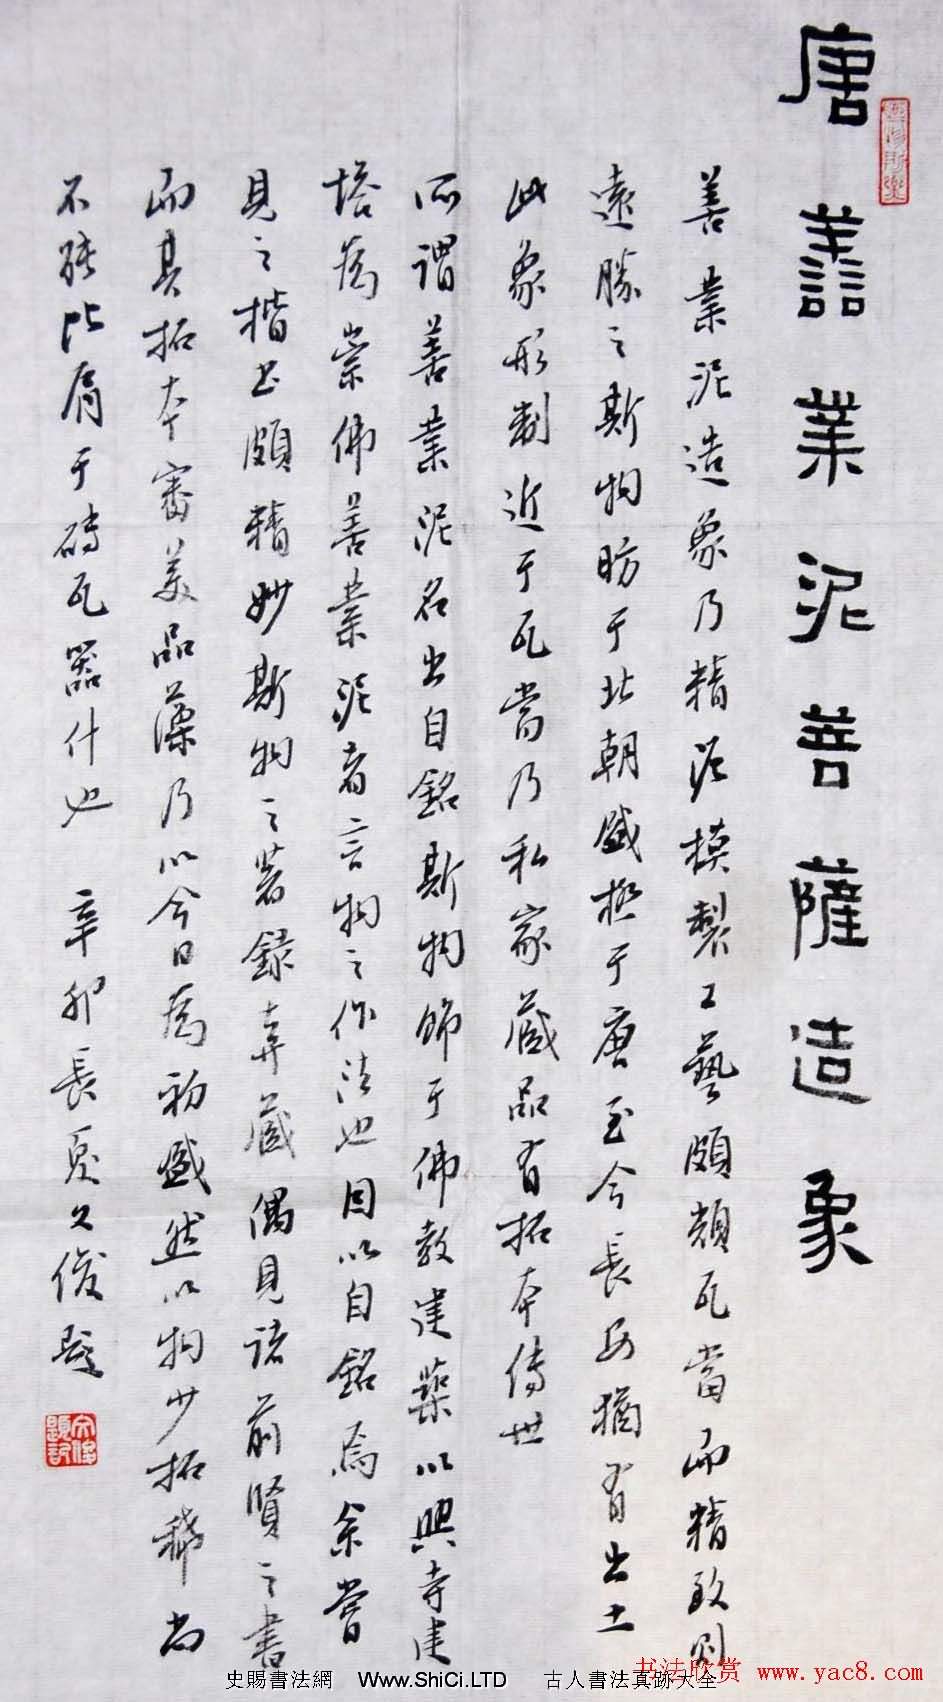 唐譱業泥菩薩造象
善業泥造象乃精泥模製工藝頗類瓦當而精致則
遠勝之斯物昉于北朝盛極于唐至今長安猶有出土
此象形制近于瓦當乃私家藏品有拓本傳世
所謂善業泥名出自銘斯物飾于佛教建築以興寺建
塔為崇佛善業泥者言物之作法也因以自銘焉余嘗
見之楷書頗精妙斯物之著錄弆藏偶見諸前賢之書
而其拓本審美品藻乃以今日為初盛然以物少拓稀尚
不能比肩于磚瓦器什也 辛卯長夏久俊題
史賜書法網 Www.ShiCi.LTD 古人書法真跡大全
书法欣赏 www.yac8.com